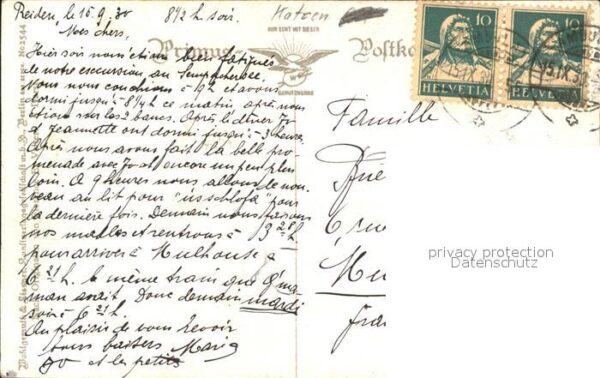 Reiden, le 15.9.30 8½ h soir.
Mes chers.
Hier soir nous étions bien fatigués
de notre excursion au Sempachersee.
Nous nous couchions à 9 h et avons
dormi jusqu'à 8½ h ce matin, après nous
étions sur les 2 bancs. Après le dîner Jo
et Jeannette ont dormi jusqu'à 3 heures.
Après nous avons fait la belle pro-
menade avec Jo et encore un peu plus
loin. A 9 heures nous allons de nou-
veau au lit pour
la dernière fois. Demain nous faisons
nos malles et rentrons à 3 28 h
pour arriver à Mulhouse à
6 21 h. le même train que
man avait. Donc demain mardi
soir à 6 21 h.
Au plaisir de vous revoir
bons baisers Marie
Jo et les petits
NUR ECHT MIT DIESER
Postka
HELVETIA
10
HELVETIA
10
Famille
6 rue
Mu
Fra
privacy protection
Datenschutz